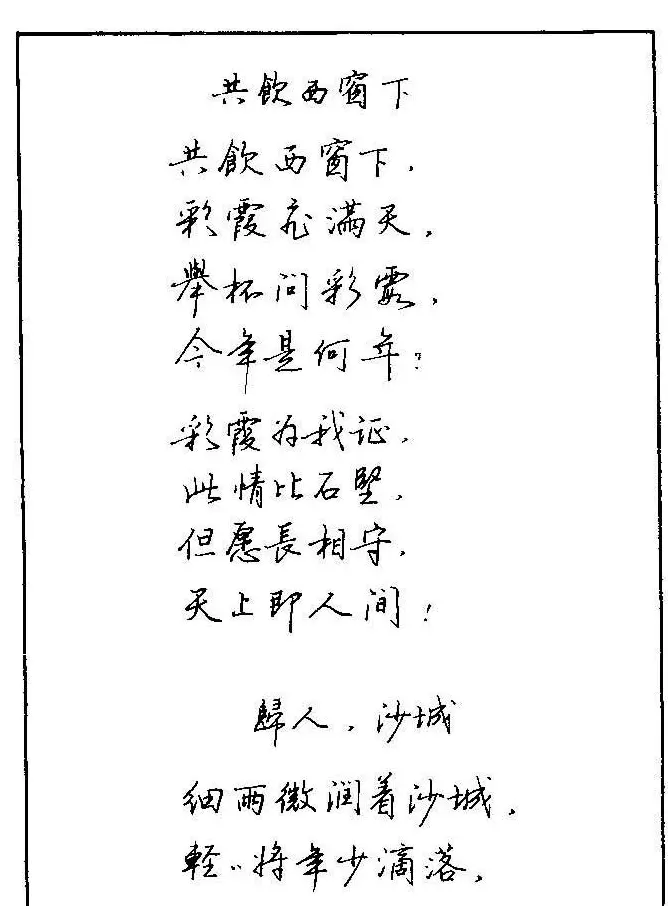 共飲西窗下
共飲西窗下，
彩霞飛滿天，
舉杯问彩霞，
今年是何年？
彩霞为我证，
此情比石堅，
但愿長相守，
天上即人间！
歸人，沙城
细雨微润着沙城，
輕〃將年少滴落，